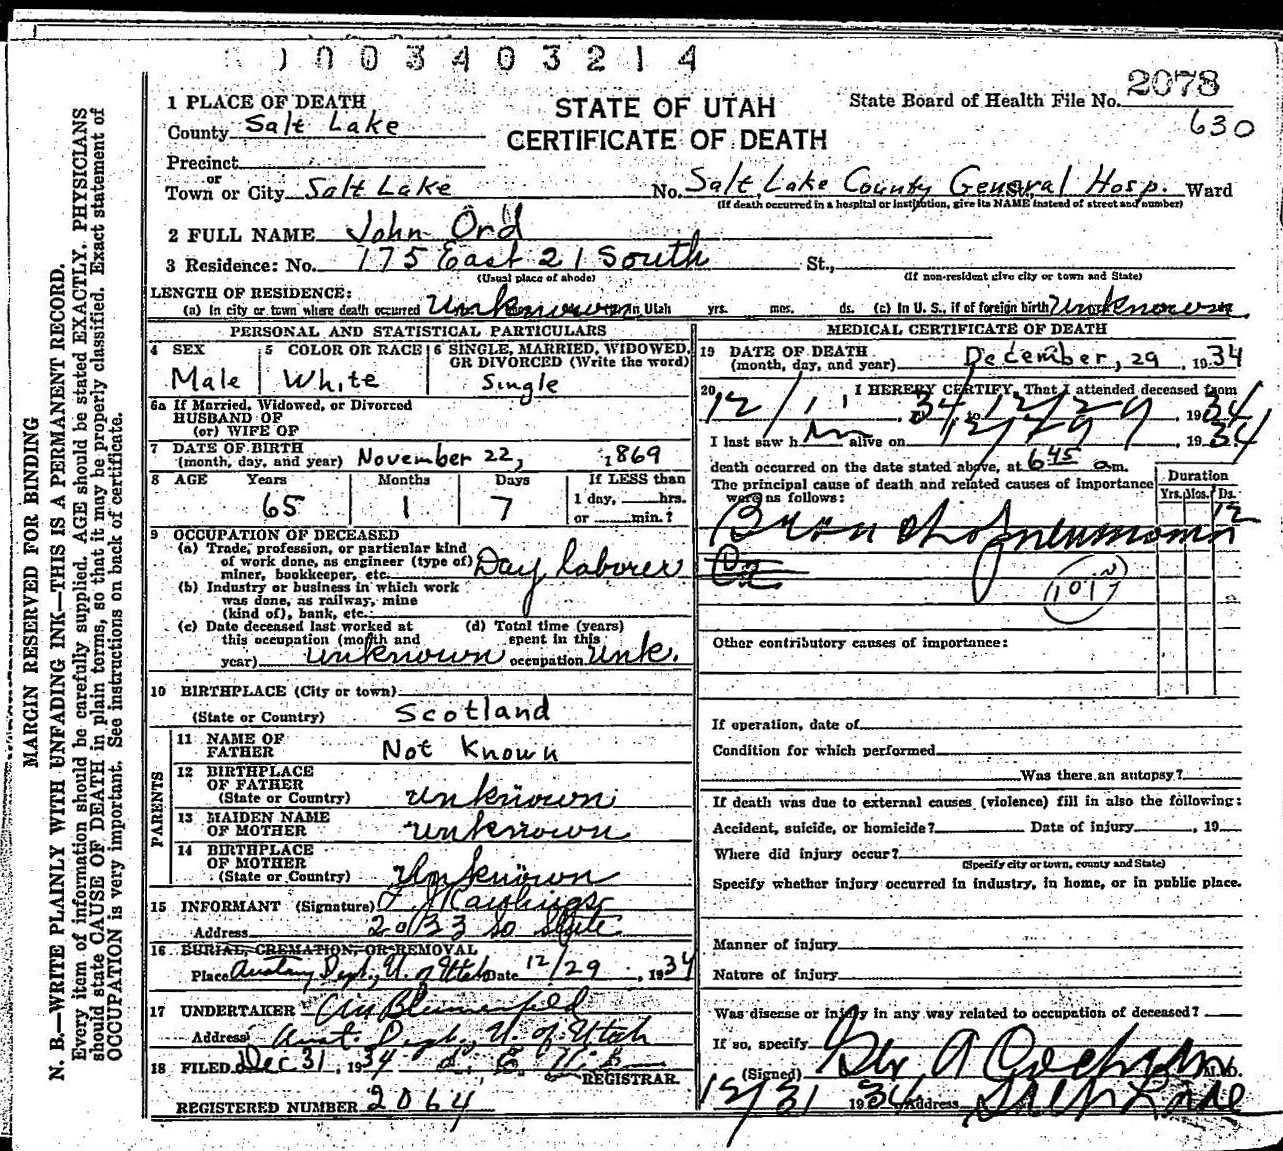 1003403214
2078
1 PLACE OF DEATH
STATE OF UTAH
State Board of Health File No.
630
County Salt Lake
CERTIFICATE OF DEATH
Precinct
or
Town or City Salt Lake No. Salt Lake County General Hosp. Ward
(If death occurred in a hospital or institution, give its NAME instead of street and number)
2 FULL NAME John Ord
3 Residence: No. 175 East 21 South St.,
(Usual place of abode) (If non-resident give city or town and State)
LENGTH OF RESIDENCE:
(a) In city or town where death occurred Unknown in Utah yrs. mos. ds. (c) In U. S., if of foreign birth Unknown
PERSONAL AND STATISTICAL PARTICULARS
4 SEX Male
5 COLOR OR RACE White
6 SINGLE, MARRIED, WIDOWED, OR DIVORCED (Write the word)
Single
6a If Married, Widowed, or Divorced
HUSBAND OF
(or) WIFE OF
7 DATE OF BIRTH
(month, day, and year) November 22, 1869
8 AGE Years Months Days If LESS than
65 1 7 1 day, hrs.
or min.?
9 OCCUPATION OF DECEASED
(a) Trade, profession, or particular kind
of work done, as engineer (type of)
miner, bookkeeper, etc. Day laborer
(b) Industry or business in which work
was done, as railway, mine
(kind of), bank, etc.
(c) Date deceased last worked at (d) Total time (years)
this occupation (month and spent in this
year) unknown occupation unk.
10 BIRTHPLACE (City or town)
(State or Country) Scotland
PARENTS
11 NAME OF
FATHER Not Known
12 BIRTHPLACE
OF FATHER
(State or Country) unknown
13 MAIDEN NAME
OF MOTHER unknown
14 BIRTHPLACE
OF MOTHER
(State or Country) Unknown
15 INFORMANT (Signature) Rawlings
Address 2033 so state
16 BURIAL, CREMATION, OR REMOVAL
Place Anatomy Dept., U. of Utah Date 12/29, 1934
17 UNDERTAKER Blumenfeld
Address Anat. Dept., U. of Utah
18 FILED Dec 31, 1934
REGISTRAR.
REGISTERED NUMBER 2064
MEDICAL CERTIFICATE OF DEATH
19 DATE OF DEATH
(month, day, and year) December, 29, 1934
20 I HEREBY CERTIFY, That I attended deceased from
12/11, 34, to 12/29 1934
I last saw him alive on 12/29, 1934
death occurred on the date stated above, at 6 45 am.
The principal cause of death and related causes of importance
were as follows:
Duration
Yrs. Mos. Ds.
Bronchopneumonia 12
107
Other contributory causes of importance:
If operation, date of
Condition for which performed
Was there an autopsy?
If death was due to external causes (violence) fill in also the following:
Accident, suicide, or homicide? Date of injury , 19
Where did injury occur?
(Specify city or town, county and State)
Specify whether injury occurred in industry, in home, or in public place.
Manner of injury
Nature of injury
Was disease or injury in any way related to occupation of deceased?
If so, specify
(Signed) Geo. A Cochran M. D.
12/31 1934 Address Salt Lake
MARGIN RESERVED FOR BINDING
N. B.—WRITE PLAINLY WITH UNFADING INK—THIS IS A PERMANENT RECORD.
Every item of information should be carefully supplied. AGE should be stated EXACTLY. PHYSICIANS
should state CAUSE OF DEATH in plain terms, so that it may be properly classified. Exact statement of
OCCUPATION is very important. See instructions on back of certificate.